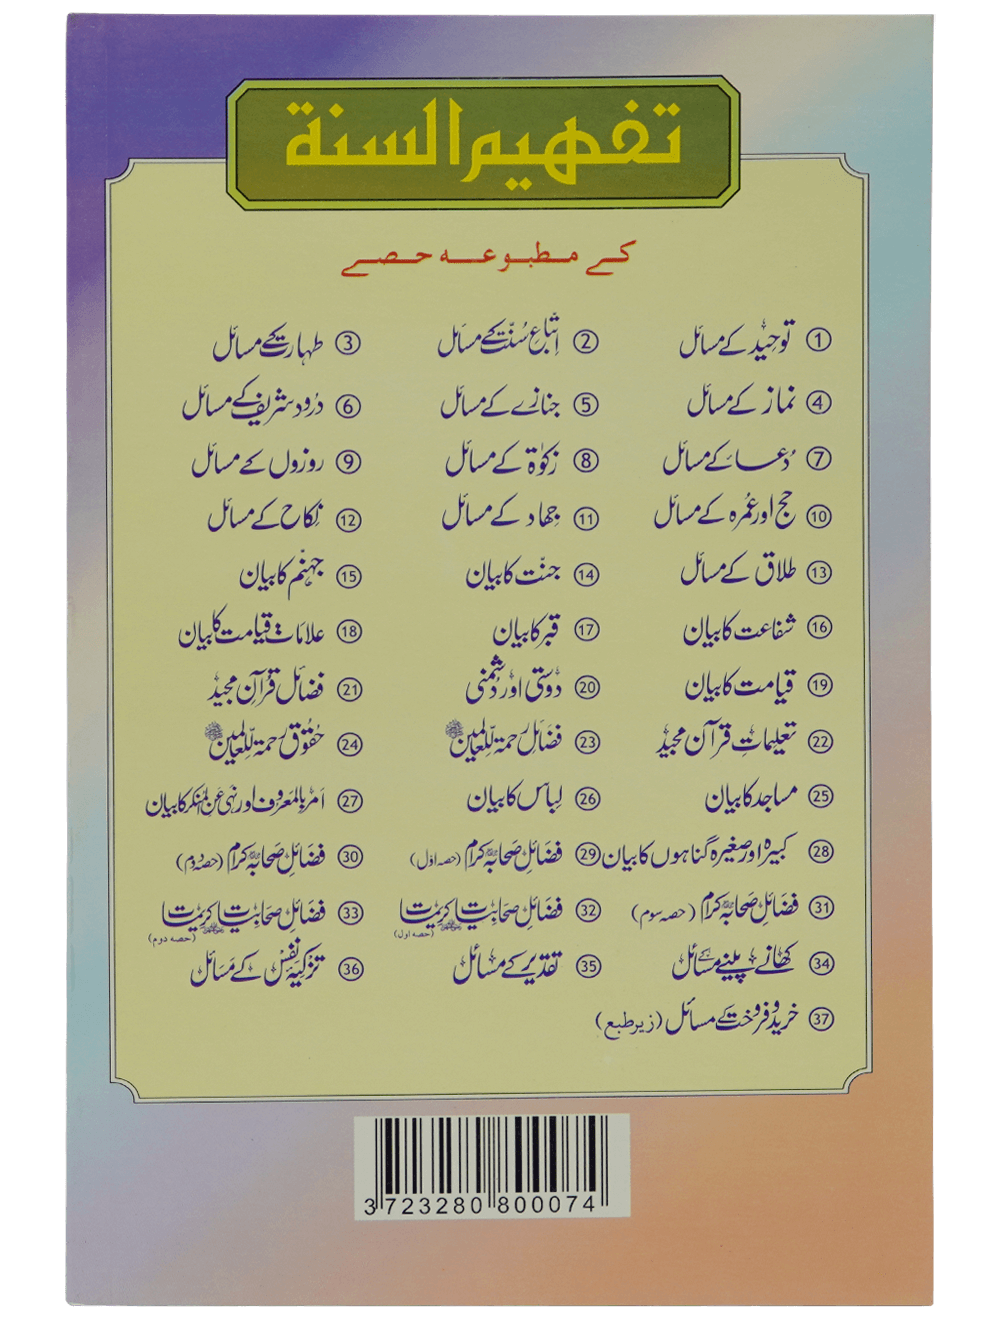 تفهيم السنة
کے مطبوعہ حصے
① توحید کے مسائل ② اتباع سنت کے مسائل ③ طہارت کے مسائل
④ نماز کے مسائل ⑤ جنازے کے مسائل ⑥ درود شریف کے مسائل
⑦ دعا کے مسائل ⑧ زکوٰۃ کے مسائل ⑨ روزوں کے مسائل
⑩ حج اور عمرہ کے مسائل ⑪ جہاد کے مسائل ⑫ نکاح کے مسائل
⑬ طلاق کے مسائل ⑭ جنت کا بیان ⑮ جہنم کا بیان
⑯ شفاعت کا بیان ⑰ قبر کا بیان ⑱ علامات قیامت کا بیان
⑲ قیامت کا بیان ⑳ دوستی اور دشمنی ㉑ فضائل قرآن مجید
㉒ تعلیمات قرآن مجید ㉓ فضائل رحمۃ للعالمین ﷺ ㉔ حقوق رحمۃ للعالمین ﷺ
㉕ مساجد کا بیان ㉖ لباس کا بیان ㉗ امر بالمعروف اور نہی عن المنکر کا بیان
㉘ کبیرہ اور صغیرہ گناہوں کا بیان ㉙ فضائل صحابہ کرام (حصہ اول) ㉚ فضائل صحابہ کرام (حصہ دوم)
㉛ فضائل صحابہ کرام (حصہ سوم) ㉜ فضائل صحابیات کریمات (حصہ اول) ㉝ فضائل صحابیات کریمات (حصہ دوم)
㉞ کھانے پینے کے مسائل ㉟ تقدیر کے مسائل ㊱ تزکیہ نفس کے مسائل
㊲ خرید و فروخت کے مسائل (زیر طبع)
3 723280 800074